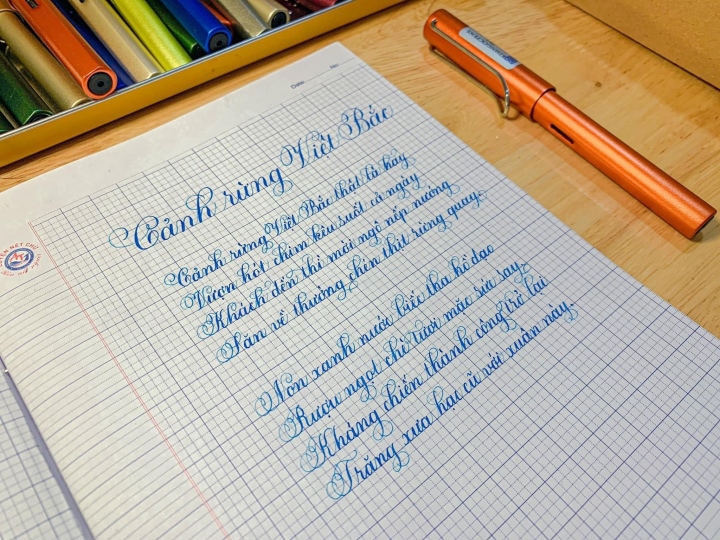 Date: No:
Cảnh rừng Việt Bắc
Cảnh rừng Việt Bắc thật là hay
Vượn hót chim kêu suốt cả ngày
Khách đến thì mời ngô nếp nướng
Săn về thường chén thịt rừng quay.
Non xanh nước biếc tha hồ dạo
Rượu ngọt chè tươi mặc sức say
Kháng chiến thành công trở lại
Trăng xưa hạc cũ với xuân này.